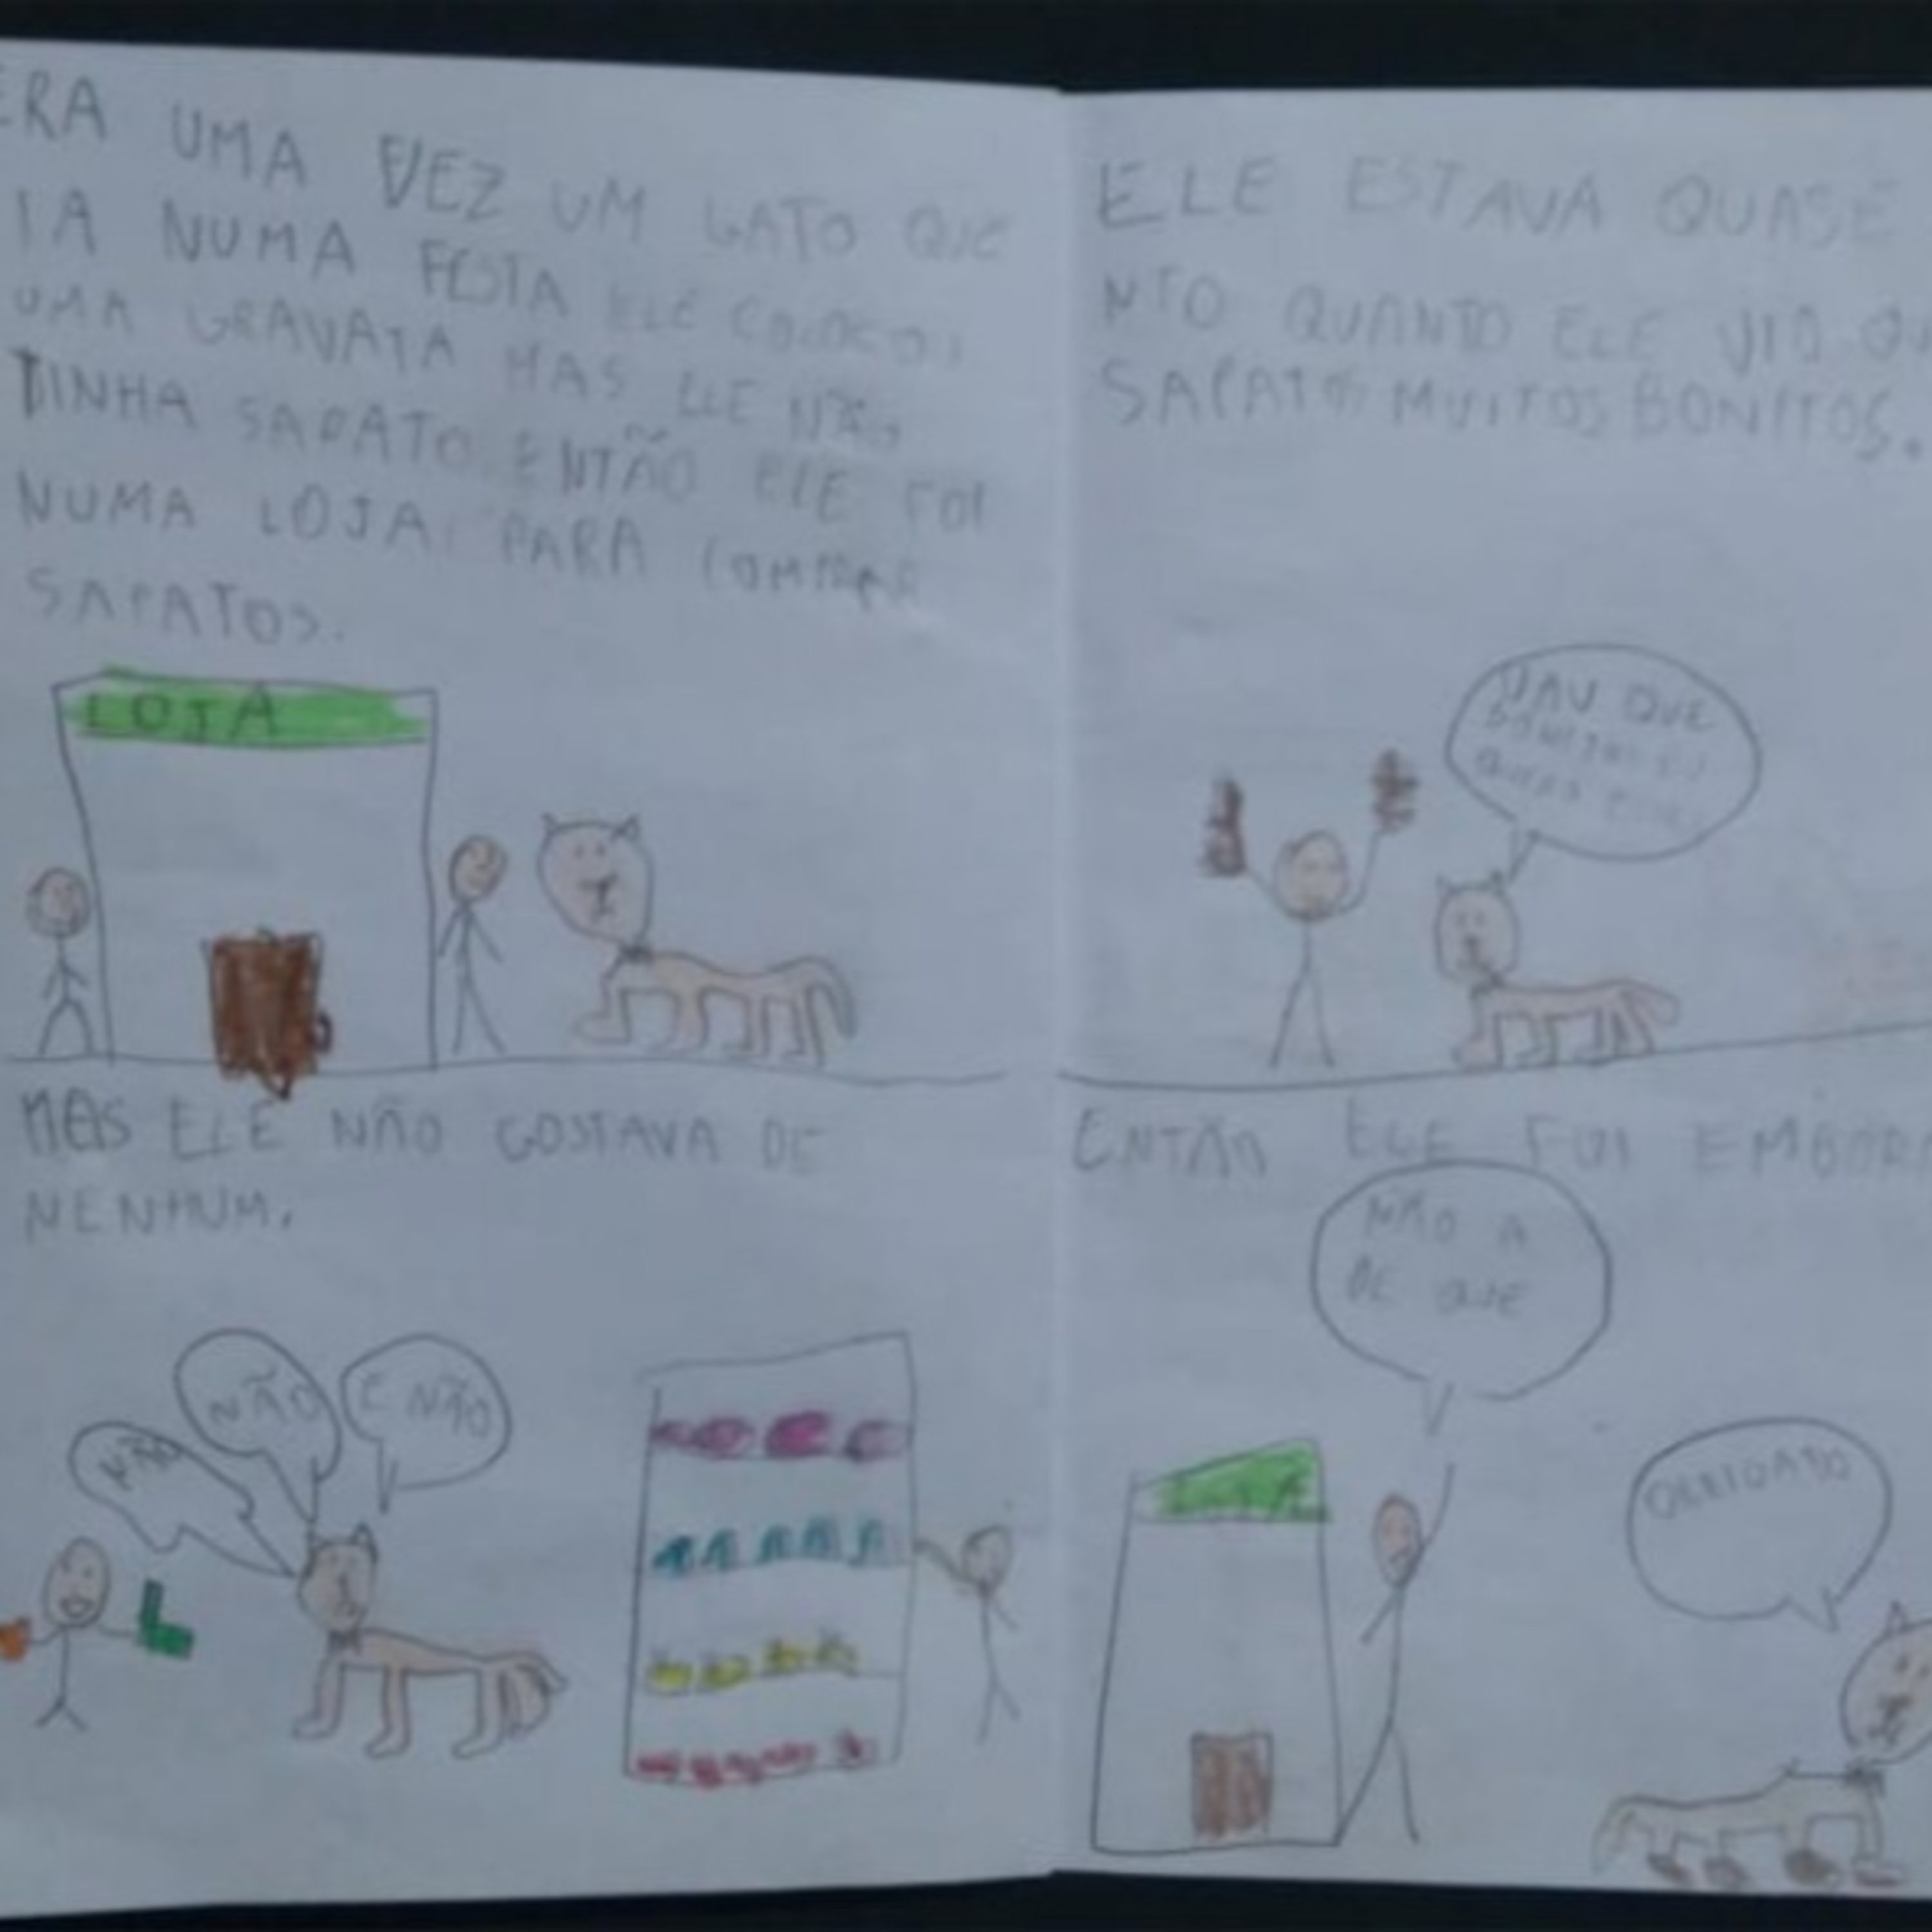 ERA UMA VEZ UM GATO QUE
IA NUMA FESTA ELE COLOCOU
UMA GRAVATA MAS ELE NÃO
TINHA SAPATO. ENTÃO ELE FOI
NUMA LOJA PARA COMPRAR
SAPATOS.
LOJA
MAS ELE NÃO GOSTAVA DE
NENHUM.
NÃO
NÃO
E NÃO
ELE ESTAVA QUASE
NTO QUANTO ELE VIO
SAPATOS MUITOS BONITOS.
UAU QUE
BONITOS EU
QUERO
ENTÃO ELE FOI EMBORA
NÃO A
DE QUE
LOJA
OBRIGATO